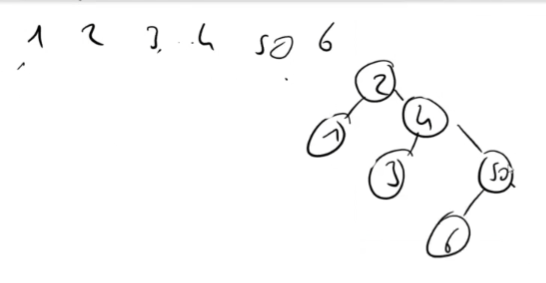 1 2 3 4 50 6
2
1 4
3 50
6